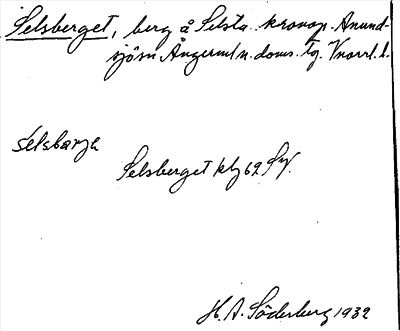 Selsberget, berg å Selsta kronop. Anund-
sjö sn Ångerml n. doms. tg. Vnorrl. l.
selsbarjə
Selsberget kbl 62 SV.
H. A. Söderberg 1932